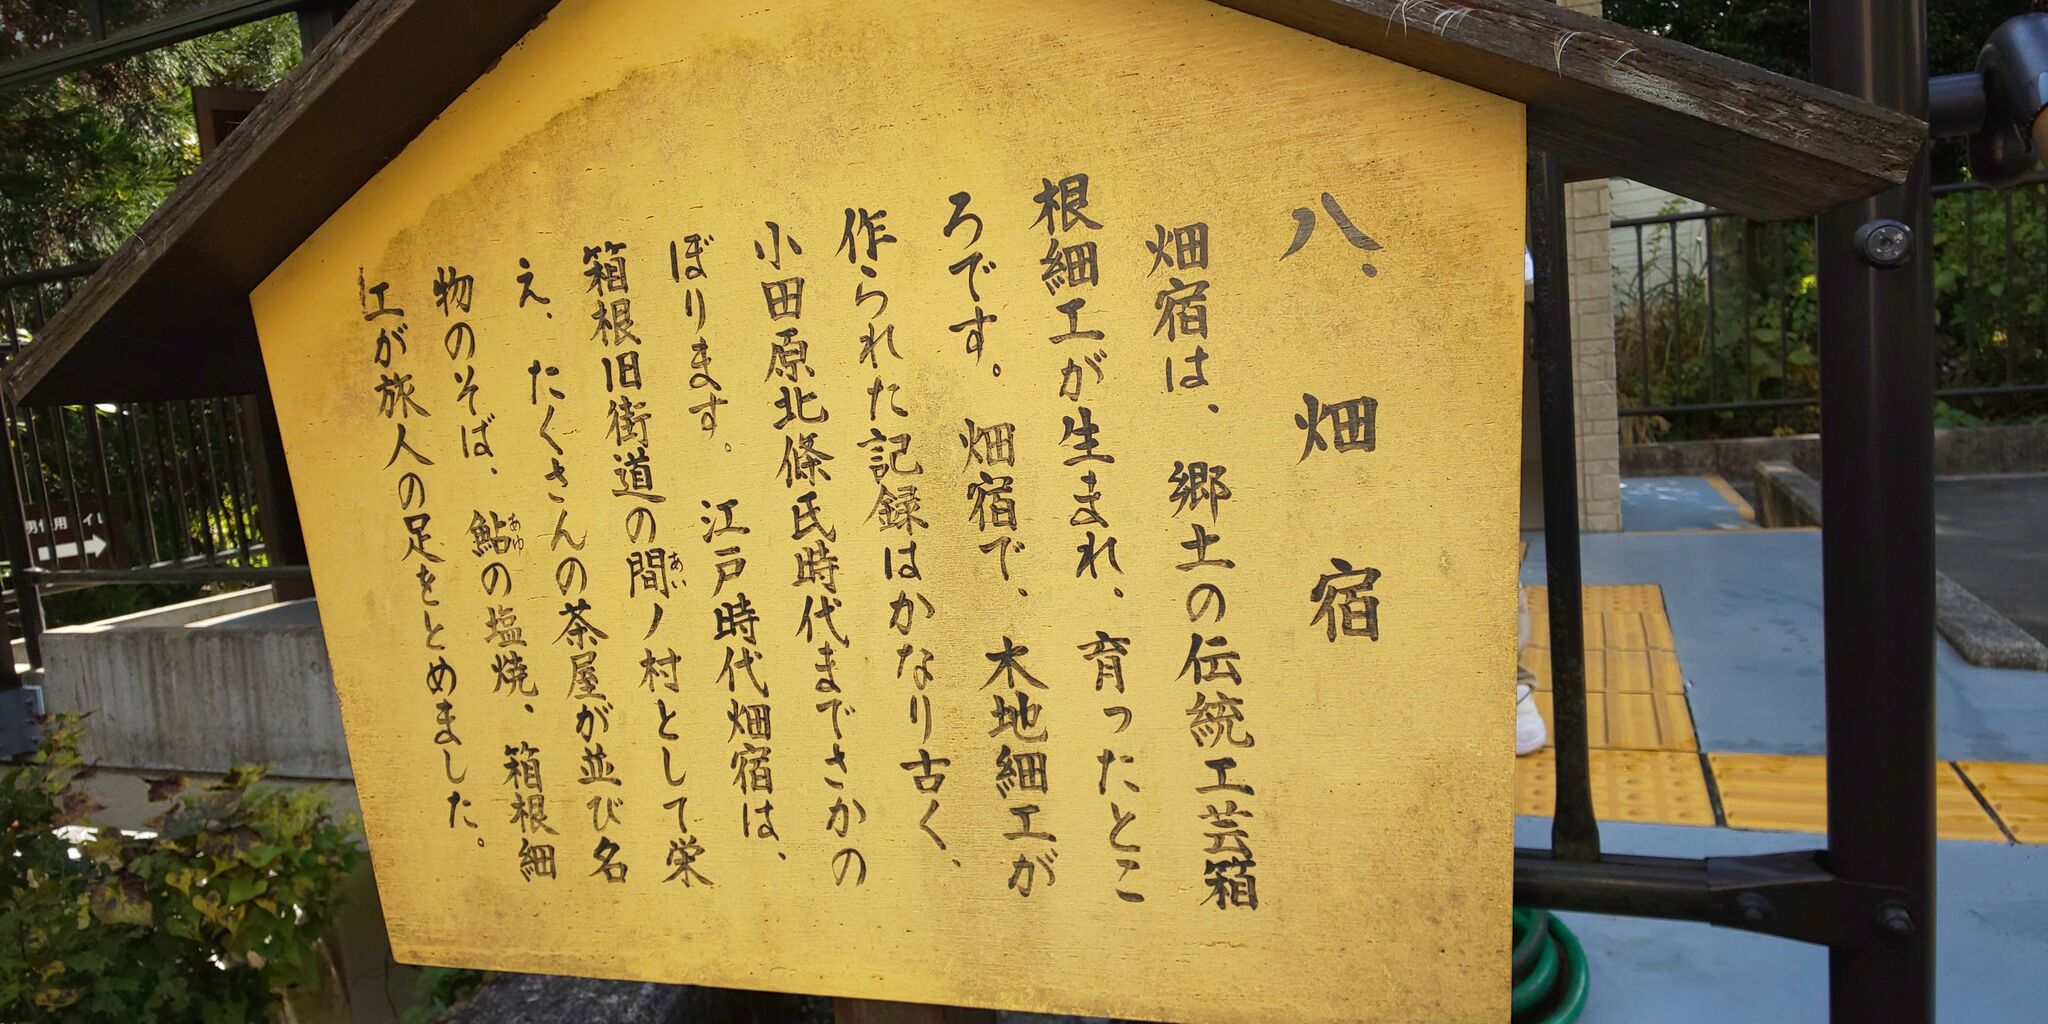 八、畑宿
畑宿は、郷土の伝統工芸箱
根細工が生まれ、育ったとこ
ろです。畑宿で、木地細工が
作られた記録はかなり古く、
小田原北條氏時代までさかの
ぼります。江戸時代畑宿は、
箱根旧街道の間ノ村として栄
あい
え、たくさんの茶屋が並び名
物のそば、鮎の塩焼、箱根細
あゆ
工が旅人の足をとめました。